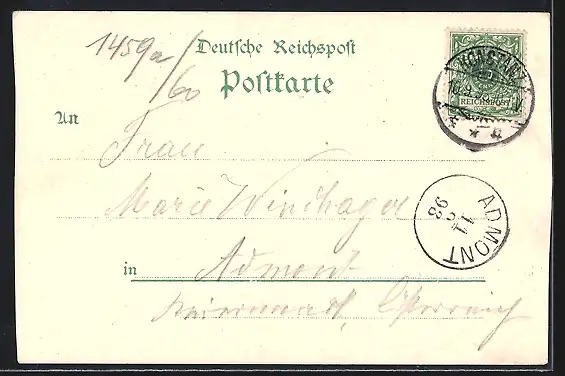 1459a/60
Deutsche Reichspost
Postkarte
KONSTANZ
REICHSPOST
An
Frau
Marie Windhager
ADMONT
11
98
in Admont
Steiermark, Österreich